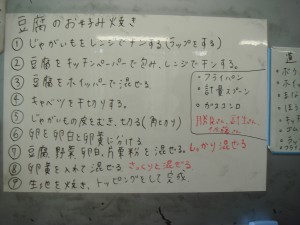 豆腐のお好み焼き
① じゃがいもをレンジでチンする(ラップをする)
② 豆腐をキッチンペーパーで包み、レンジでチンする。
③ 豆腐をホイッパーで混ぜる
④ キャベツを千切りする。
⑤ じゃがいもの皮をむき、切る(角切り)
⑥ 卵を卵白と卵黄に分ける
⑦ 豆腐、野菜、卵白、片栗粉を混ぜる。しっかり混ぜる
⑧ 卵黄を入れて混ぜる さっくりと混ぜる
⑨ 生地を焼き、トッピングをして完成
・フライパン
・計量スプーン
・ガスコンロ